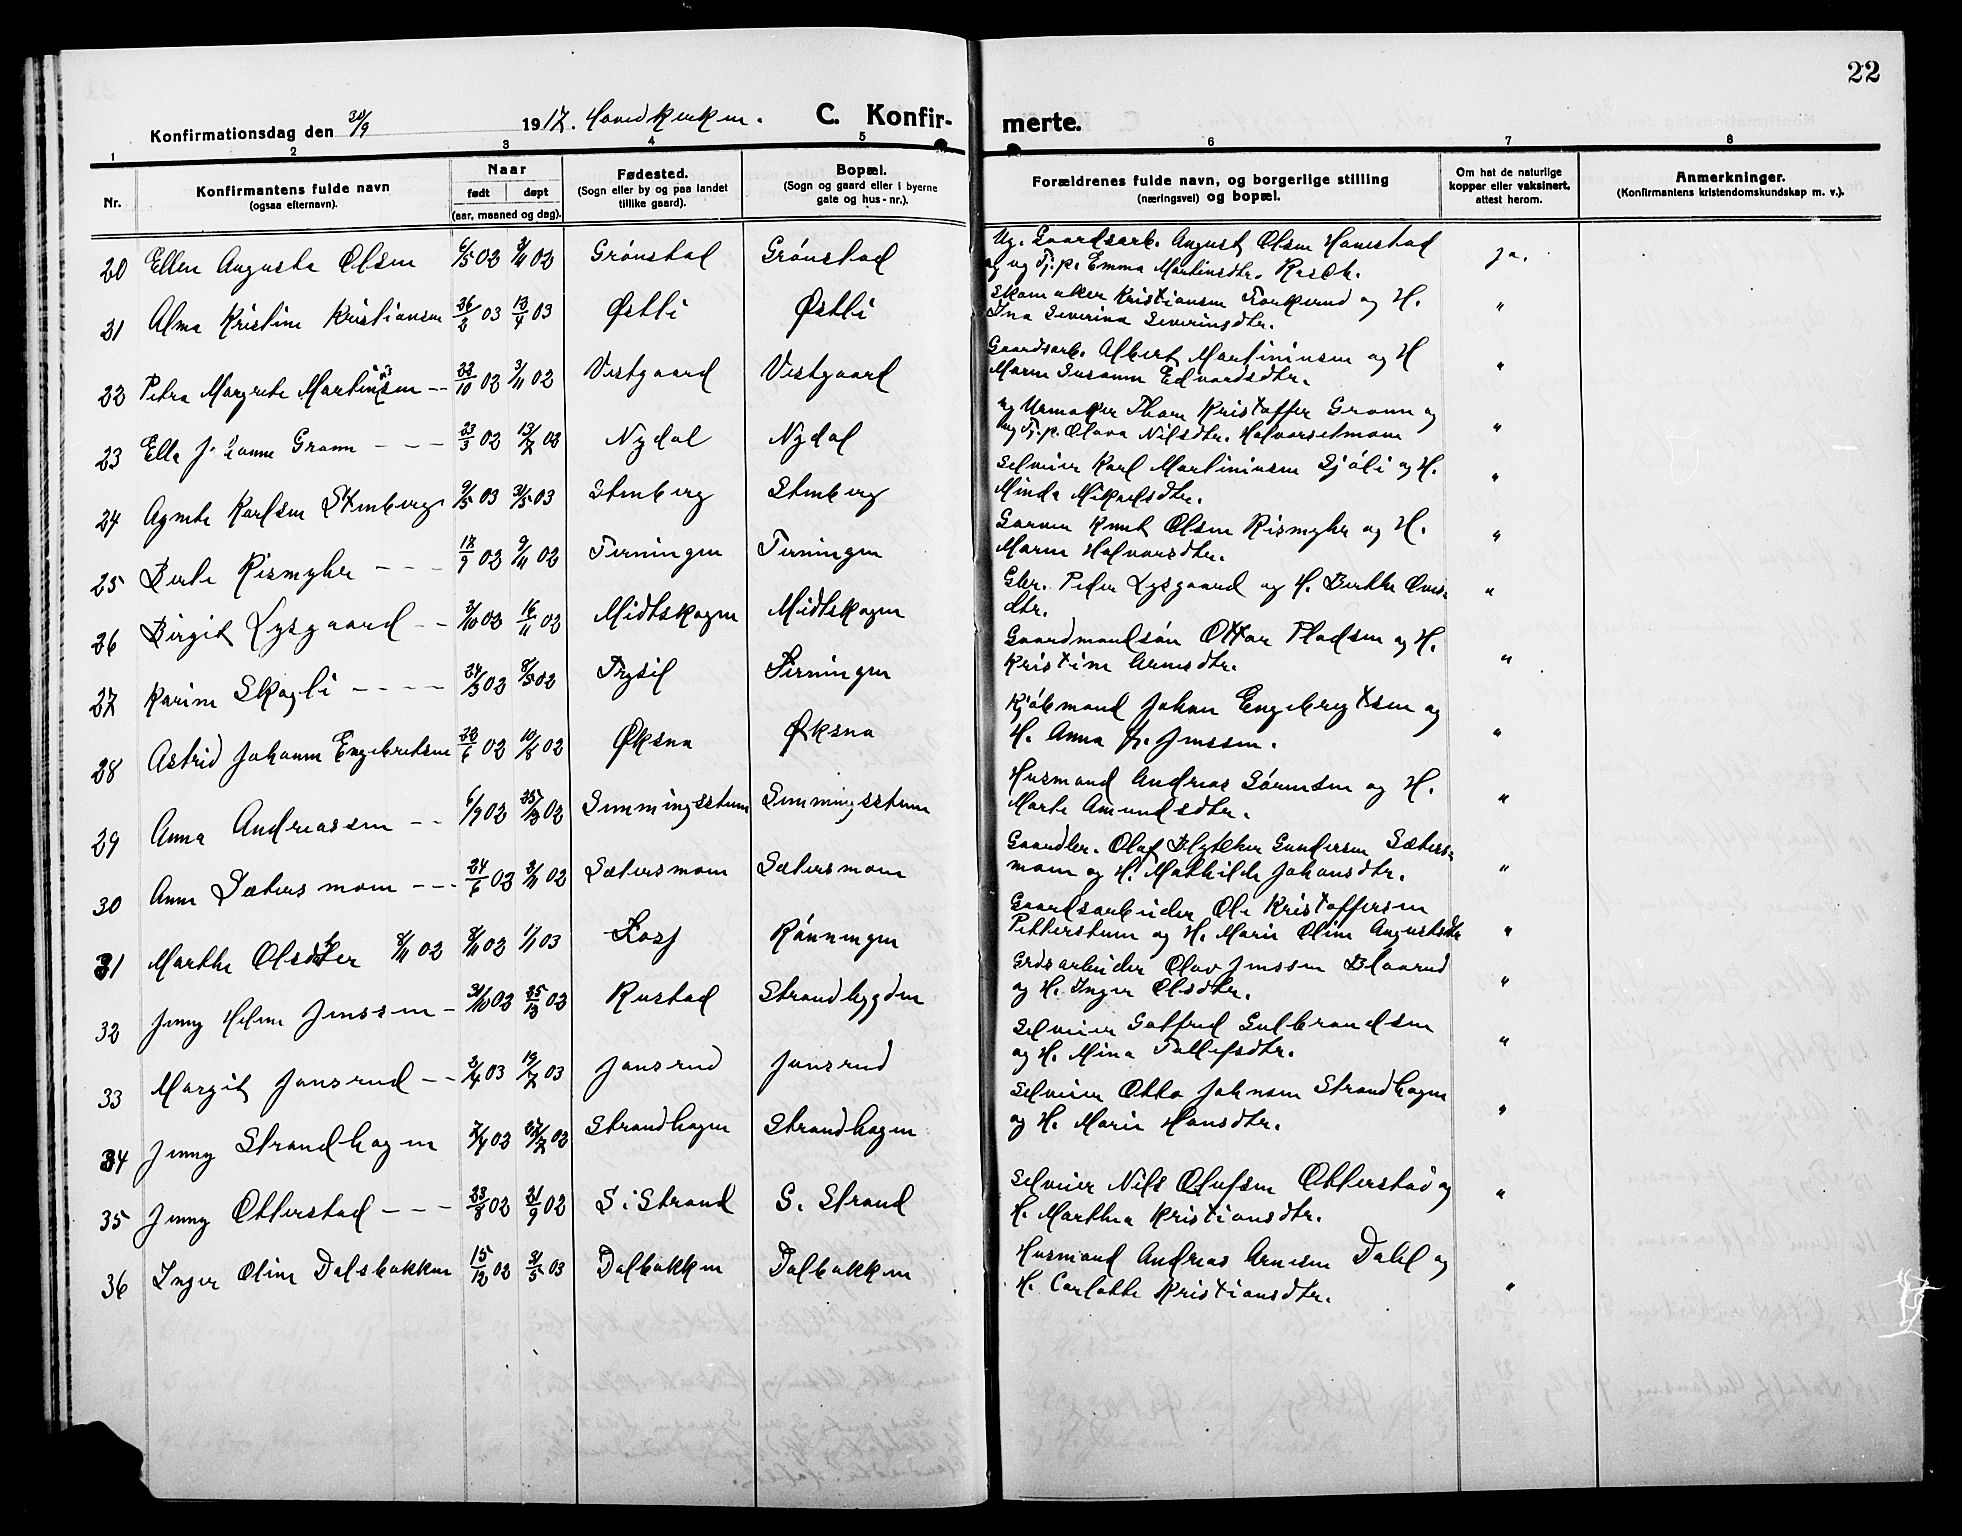 22
Konfirmationsdag den 30/9 1917. Hovedkirken. C. Konfirmerte.
1 2 3 4 5 6 7 8
Nr.
Konfirmantens fulde navn
(ogsaa efternavn).
Naar
født døpt
(aar, maaned og dag).
Fødested.
(Sogn eller by og paa landet
tillike gaard).
Bopæl.
(Sogn og gaard eller i byerne
gate og hus-nr.).
Forældrenes fulde navn, og borgerlige stilling
(næringsvei) og bopæl.
Om hat de naturlige
kopper eller vaksinert,
attest herom.
Anmerkninger.
(Konfirmantens kristendomskundskap m. v.).
20 Ellen Augusta Olsen 6/5 02 9/11 02 Grønstad Grønstad Ug. Gaardsarb. August Olsen Hanestad ja.
og ug Tj.p. Emma Martinsdtr. Rasch.
21 Alma Kristine Kristiansen 26/2 03 13/4 03 Østli Østli Skomaker Kristiansen og H. "
Ina Severina Severinsdtr.
22 Petra Margrete Martinsen -- 22/10 02 3/11 02 Vestgaard Vestgaard Gaardsarb. Albert Martininsen og H "
Maren Susanne Edvardsdtr.
23 Ella Johanne Grann --- 23/3 02 13/7 02 Nydal Nydal ug Urmaker Thom Kristoffer Grann og "
ug Tj.p. Olava Nilsdtr. Halvorsetmoen
24 Agnete Karlsen Stenberg 9/5 03 31/5 03 Stenberg Stenberg Selveier Karl Martininsen Sjøli og H. "
Minda Mikaelsdtr.
25 Berte Rismyhr --- 17/9 02 9/11 02 Terningen Terningen Garver Knut Olsen Rismyhr og H. "
Maren Halvorsdtr.
26 Birgit Lysgaard -- 2/10 02 16/11 02 Midtskogen Midtskogen Gbr. Peder Lysgaard og H. Berthe "
dtr.
27 Karine Skogli ---- 24/3 02 8/5 02 Trysil Terningen Gaardmandsøn Ottar Pladsen og H. "
Kristine Arnesdtr.
28 Astrid Johanne Engebretsen 22/6 02 10/8 02 Øksna Øksna Kjøbmand Johan Engebrigtsen og "
H. Anna Jenssen.
29 Anna Andreassen -- 6/9 02 25/12 02 Simmingsstuen Simmingsstuen Husmand Andreas Sørensen og H. "
Marte Amundsdtr.
30 Anne Sætersmoen --- 24/6 02 2/11 02 Sætersmoen Sætersmoen Gaardbr. Olaf Blytcher Gundersen Sæters= "
moen og H. Mathilde Johansdtr.
31 Marthe Olsdtter 8/11 02 8/11 02 1/1 03 Losj Rønningen Gaardsarbeider Ole Kristoffersen
Petterstuen og H. Marie Oline Augustsdtr "
32 Jenny Helene Jenssen - 31/10 02 25/12 02 Rustad Strandbygden Grdsarbeider Olav Jenssen Blaarud "
og H. Inger Olsdtr.
33 Margit Jansrud -- 2/4 03 19/7 03 Jansrud Jansrud Selveier Gotfred Gulbrandsen "
og H. Mina Tollefsdtr.
34 Jenny Strandhagen 7/4 02 27/7 02 Strandhagen Strandhagen Selveier Otto Johnsen Strandhagen "
og H. Marie Hansdtr.
35 Jenny Otterstad --- 23/8 02 21/9 02 S. Strand S. Strand Selveier Nils Olufsen Otterstad og "
H. Marthea Kristiansdtr.
36 Inger Oline Dalsbakken 15/12 02 31/5 03 Dalbakken Dalbakken Husmand Andreas Arnesen Dahl og
H. Carlotte Kristiansdtr. "